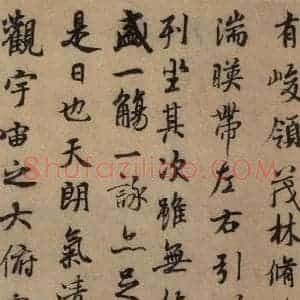 有峻領茂林脩
湍暎帶左右引
列坐其次雖無
盛一觴一詠亦足
是日也天朗氣清
觀宇宙之大俯
Shufaziliao.com